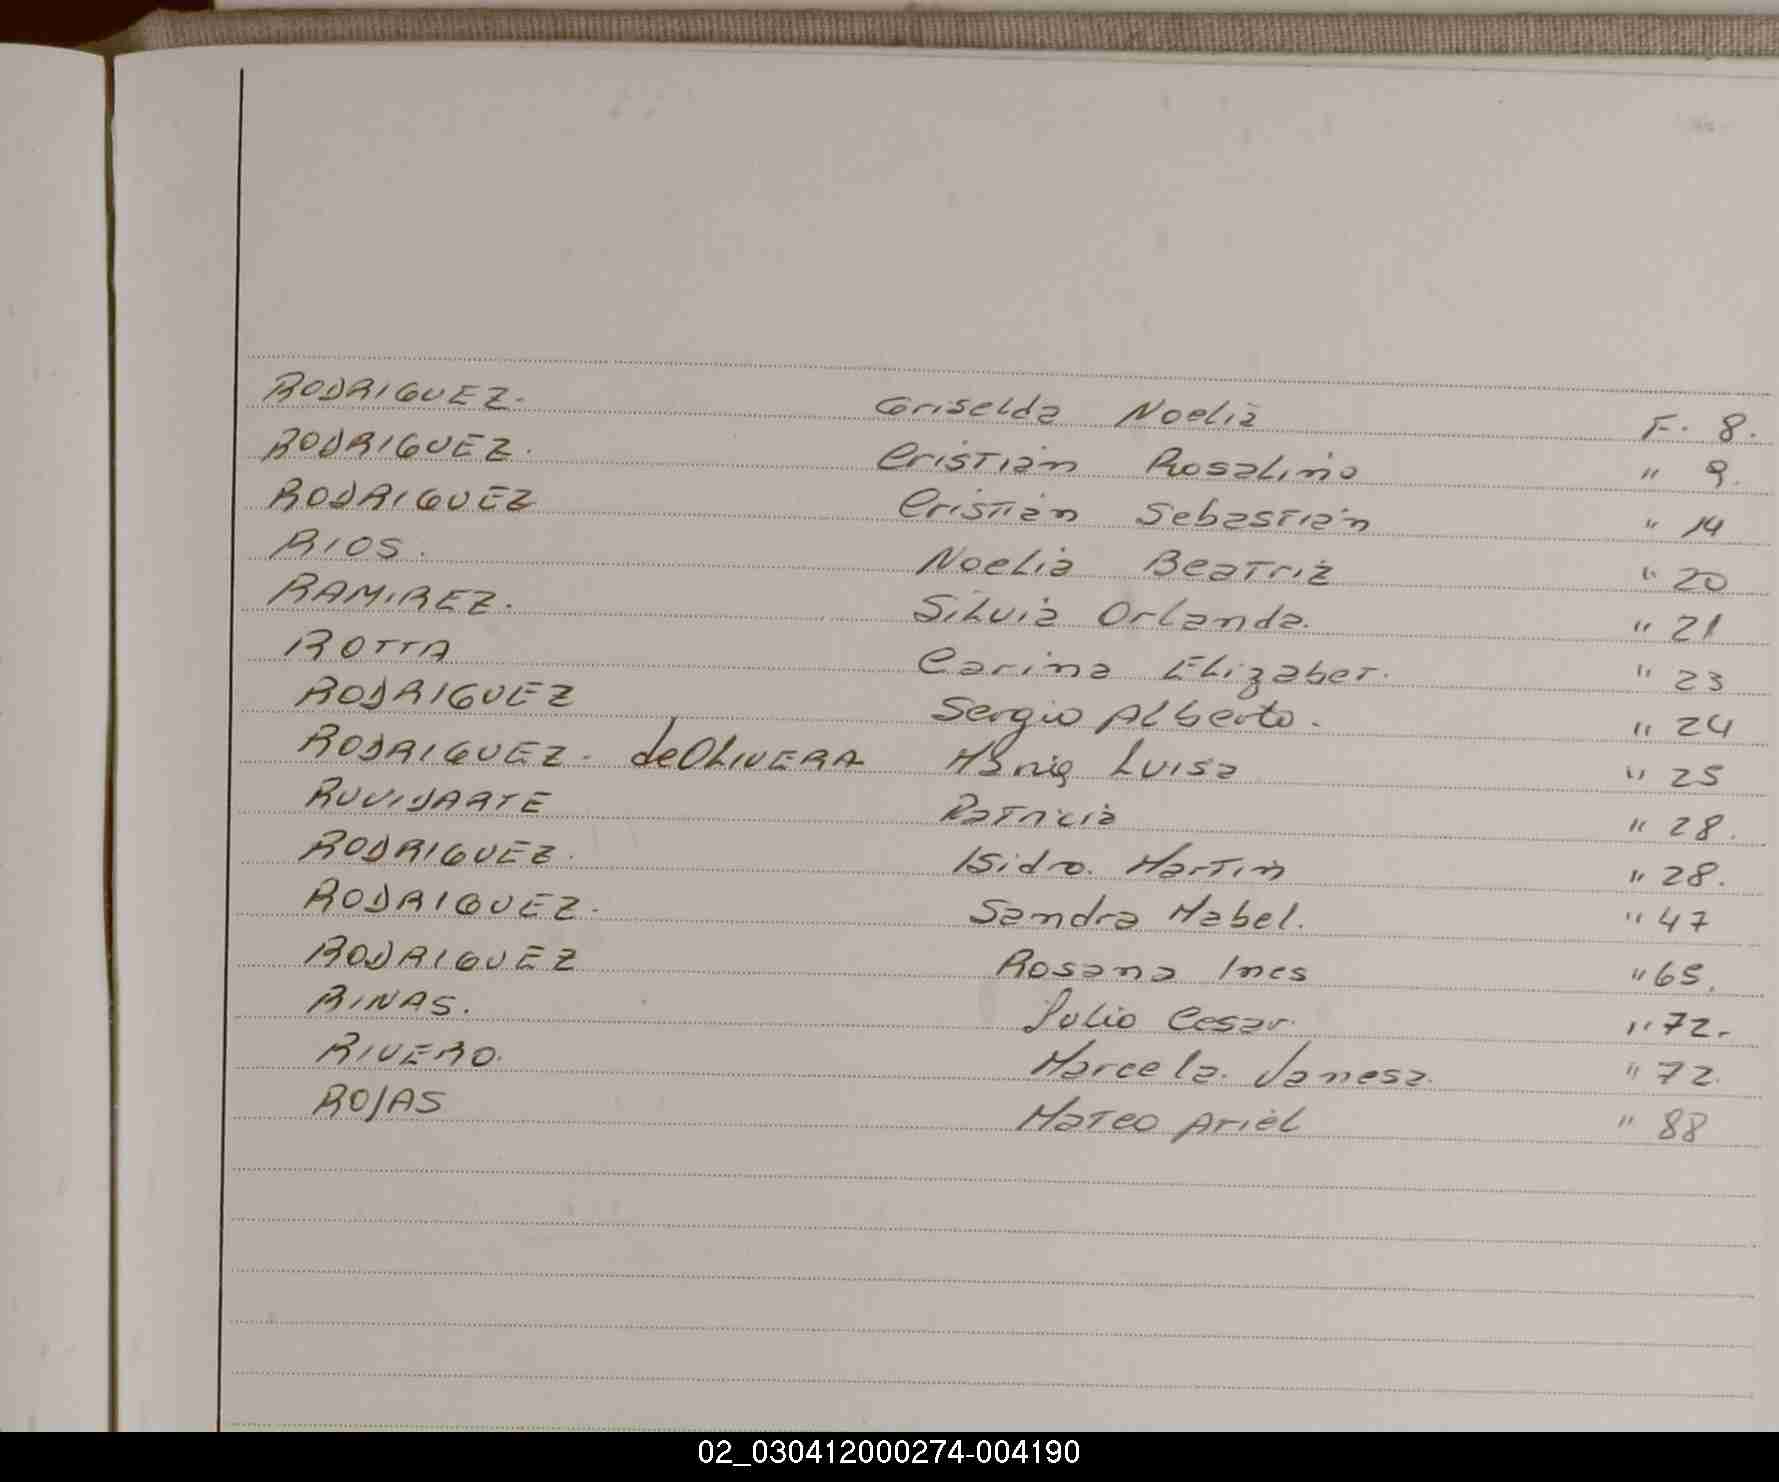 RODRIGUEZ. Griselda Noelia F. 8.
RODRIGUEZ. Cristian Rosalino " 9.
RODRIGUEZ Cristian Sebastian " 14
RIOS. Noelia Beatriz " 20
RAMIREZ. Silvia Orlanda. " 21
ROTTA Carina Elizabet. " 23
RODRIGUEZ Sergio Alberto. " 24
RODRIGUEZ. de OLIVERA Luisa " 25
RUVIDARTE Patricia " 28.
RODRIGUEZ. Isidro. Martin " 28.
RODRIGUEZ. Sandra Mabel. " 47
RODRIGUEZ Rosana Ines " 65.
RINAS. Julio Cesar. " 72.
RIVERO. Marcela. Vanesa. " 72.
ROJAS Mateo Ariel " 88
02_030412000274-004190